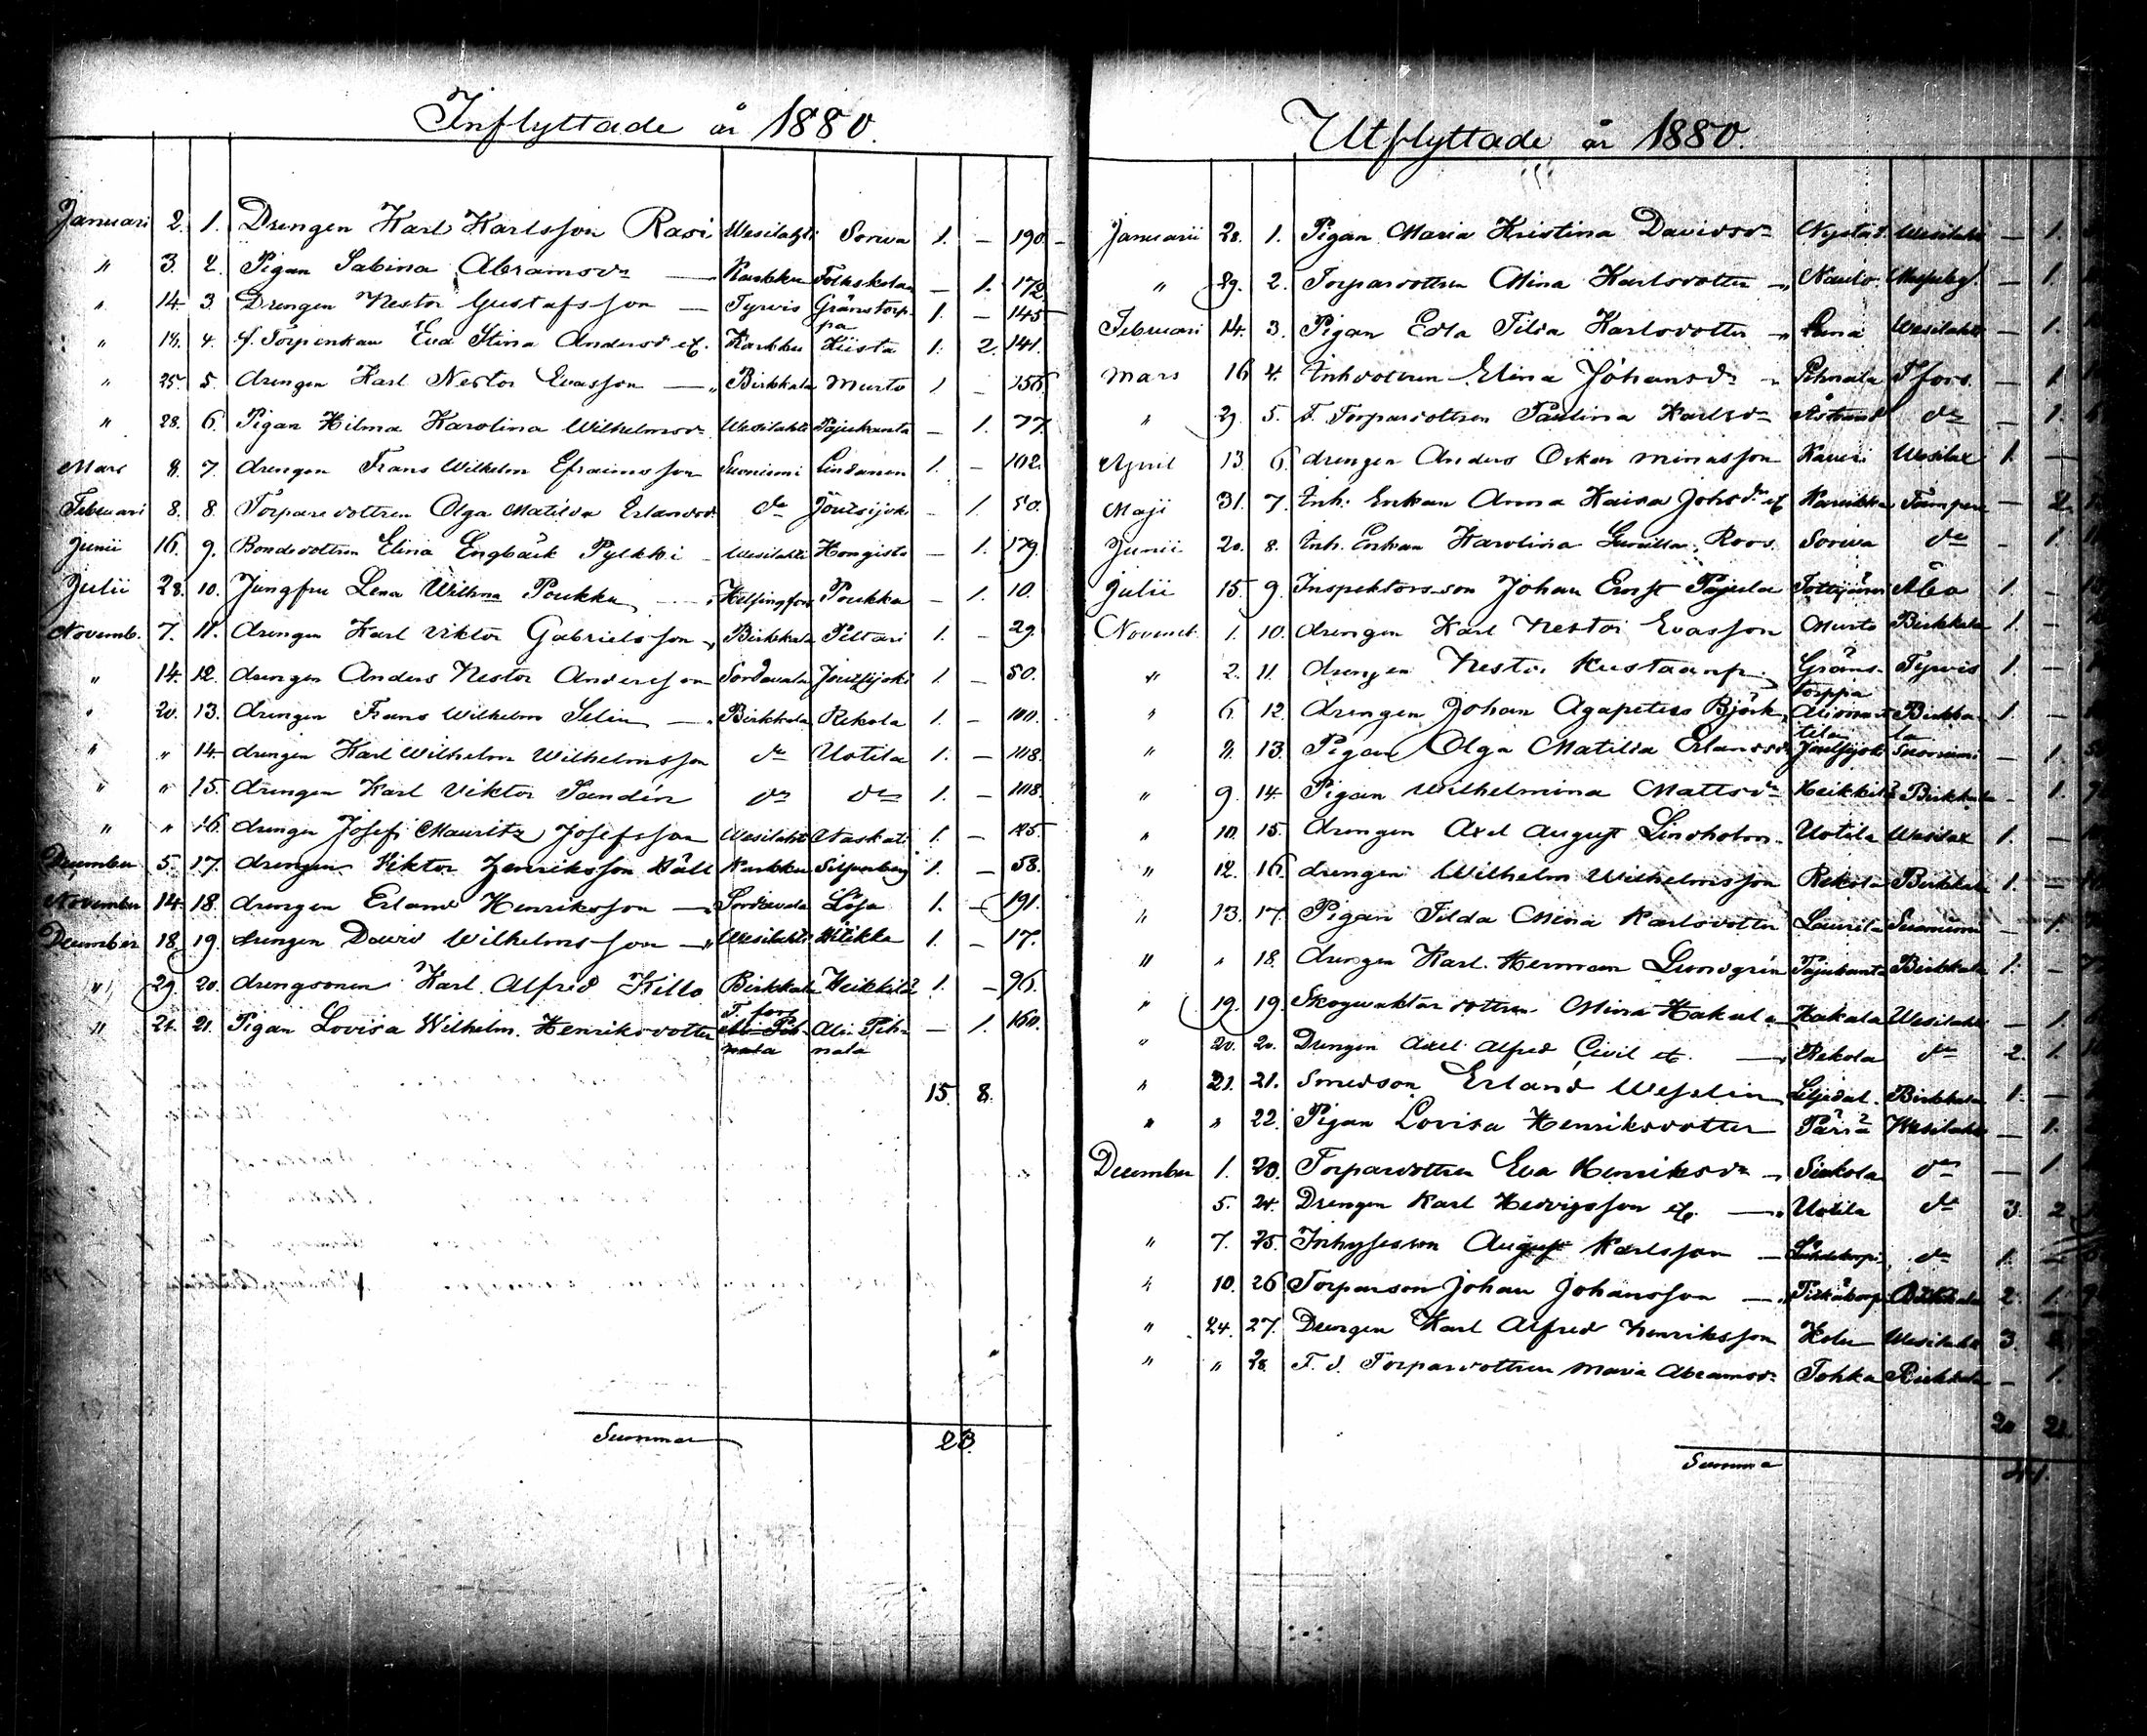 Inflyttade år 1880.
Januari 2. 1. Drengen Karl Karlsson Rasi Wesilahti Sorwa 1. — 190.
" 3. 2. Pigan Sabina Abramsdr — Karkku Folkskolan — 1. 172
" 14. 3. Drengen Nestor Gustafsson — Tyrvis Gränstorp- 1. — 145
pa
" 14. 4. f. Torpenkan Eva Stina Andersd. Karkku Kiista 1. 2. 141.
" 25. 5. drengen Karl Nestor Evasson — Birkkala Murto 1 —
" 28. 6. Pigan Hilma Karolina Wilhelmsdr. Wesilahti Pajukanta — 1. 77.
Mars 8. 7. drengen Frans Wilhelm Efraimsson Suoniemi 1. — 102.
Februari 8. 8. Torparedottren Olga Matilda Erlandsd. do Joutsijoki — 1. 50.
Junii 16. 9. Bondedottren Elina Engbäck Pylkki — Wesilahti Hongisto — 1. 179.
Julii 28. 10. Jungfru Lena Wilhma Poukka — Helsingfors Poukka — 1. 10.
Novemb. 7. 11. drengen Karl Viktor Gabrielsson Birkkala Peltari 1. — 29.
" 14. 12. drengen Anders Nestor Andersson Sordavala Joutsijoki 1. — 50.
" 20. 13. drengen Frans Wilhelm Selin — Birkkala Rekola 1. — 100.
" " 14. drengen Karl Wilhelm Wilhelmsson do Uotila 1. — 108.
" " 15. drengen Karl Viktor Sandin do do 1. — 108.
" " 16. drengen Josef Mauritz Josefsson Wesilahti Naskali 1. —
December 5. 17. drengen Viktor Henriksson Käll Karkku Silfverberg 1. — 58.
November 14. 18. drengen Erland Henriksson — Sordavala 1. — 191.
December 18. 19. drengen David Wilhelmsson — Wesilahti 1. — 17.
" 29. 20. drengsonen Karl Alfred Killo Birkkala Heikkilä 1. — 96.
T. fors
" 21. Pigan Lovisa Wilhelm. Henriksdotter Ali Pih- Ali Pih- — 1. 160.
nala nala
15. 8.
Summa 23.
Utflyttade år 1880.
Januarii 28. 1. Pigan Maria Kristina Davidsdr Nystad. Wesilahti — 1.
" 29. 2. Torparedottren Mina Karlsdotter — 1.
Februari 14. 3. Pigan Edla Tilda Karlsdotter Wesilahti — 1.
Mars 16 4. Inhdottren Elina Johansdr Pihnala T fors. — 1
" 29. 5. F. Torparedottren Paulina Karlsdr Åstrand do — 1.
April 13. 6. drengen Anders Oskar Minasson Wesilax 1. —
Maji 31. 7. Inh. Enkan Anna Kaisa Johsdr Tampere — 2.
Junii 20. 8. Inh. Enkan Karolina Roos. Sorwa do — 1.
Julii 15. 9. Inspektorsson Johan Ernst Pajula Åbo 1. —
Novemb. 1. 10. drengen Karl Nestor Evasson Murto Birkkala 1. —
" 2. 11. drengen Nestor Gräns- Tyrvis 1. —
torppa
" 6. 12. drengen Johan Agapetus Björk Birkka- 1. —
tila la
" 8. 13. Pigan Olga Matilda Erlandsdr Joutsijoki Suoniemi — 1.
" 9. 14. Pigan Wilhelmina Mattsdr Heikkilä Birkkala — 1.
" 10. 15. drengen Axel August Lindholm Uotila Wesilax 1. —
" 12. 16. drengen Wilhelm Wilhelmsson Rekola Birkkala 1. —
" 13. 17. Pigan Tilda Mina Karlsdotter Laurila Suoniemi — 1.
" " 18. drengen Karl Herman Lundgren Pajukanta Birkkala 1. —
" 19. 19. Skogvaktar dottren Mina Hakala Hakala Wesilahti — 1.
" 20. 20. Drengen Axel Alfred Civil etc. — Rekola do 2. 1.
" 21. 21. Smedson Erland Wesslin Liljedal. Birkkala 1. —
" " 22. Pigan Lovisa Henriksdotter Päriä Wesilahti — 1.
December 1. 23. Torparedottren Eva Henriksdr Siukola do — 1
5. 24. Drengen Karl Hedvigsson — Uotila do 3. 2
" 7. 25. Inhysesson August Karlsson — do 1. —
" 10. 26 Torparson Johan Johansson — Birkkala 2. 1.
" 24. 27. Drengen Karl Alfred Henriksson Wesilahti 3.
" " 28. F. d. Torparedottren Maria Abramsdr. Tohka Birkkala — 1.
20 21.
Summa 41.